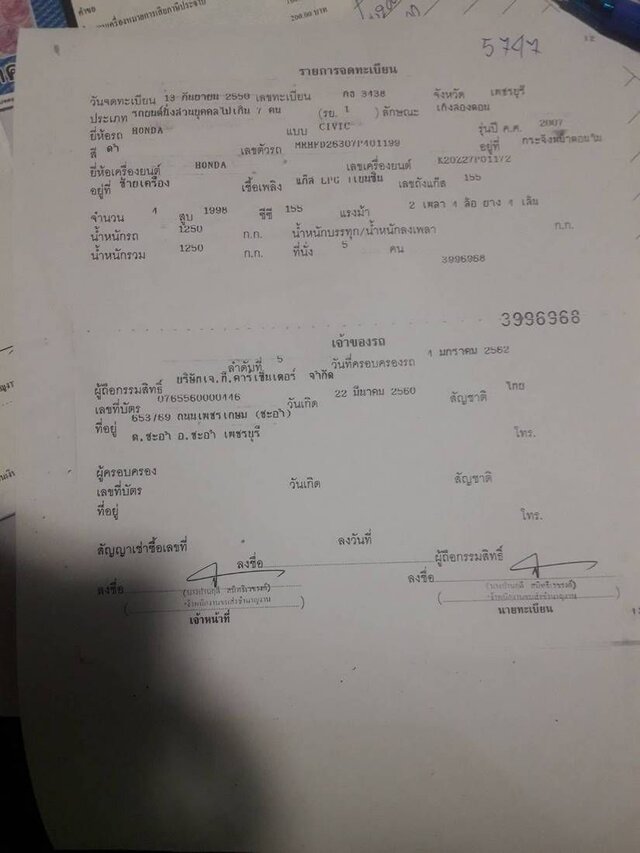 คำขอ
200.00 บาท
5747
12
รายการจดทะเบียน
วันจดทะเบียน 13 กันยายน 2550 เลขทะเบียน กง 3438 จังหวัด เพชรบุรี
ประเภท รถยนต์นั่งส่วนบุคคลไม่เกิน 7 คน (รย. 1 ) ลักษณะ เก๋งสองตอน
ยี่ห้อรถ HONDA แบบ CIVIC รุ่นปี ค.ศ. 2007
สี ดำ เลขตัวรถ MRHFD26307P401199 อยู่ที่
ยี่ห้อเครื่องยนต์ HONDA เลขเครื่องยนต์
อยู่ที่ ซ้ายเครื่อง เชื้อเพลิง แก๊ส LPG เบนซิน เลขถังแก๊ส 155
จำนวน 4 สูบ 1998 ซีซี 155 แรงม้า 2 เพลา 4 ล้อ ยาง 4 เส้น
น้ำหนักรถ 1250 ก.ก. น้ำหนักบรรทุก/น้ำหนักลงเพลา ก.ก.
น้ำหนักรวม 1250 ก.ก. ที่นั่ง 5 คน
3996968
3996968
เจ้าของรถ
ลำดับที่ 5 วันที่ครอบครองรถ 4 มกราคม 2562
ผู้ถือกรรมสิทธิ์ บริษัทเจ.ที.คาร์เซ็นเตอร์ จำกัด
เลขที่บัตร 0765560000446 วันเกิด 22 มีนาคม 2560 สัญชาติ ไทย
ที่อยู่ 653/69 ถนนเพชรเกษม (ชะอำ)
ต.ชะอำ อ.ชะอำ เพชรบุรี โทร.
ผู้ครอบครอง
เลขที่บัตร วันเกิด สัญชาติ
ที่อยู่ โทร.
สัญญาเช่าซื้อเลขที่ ลงวันที่
ลงชื่อ ผู้ถือกรรมสิทธิ์
ลงชื่อ ลงชื่อ
เจ้าหน้าที่ นายทะเบียน